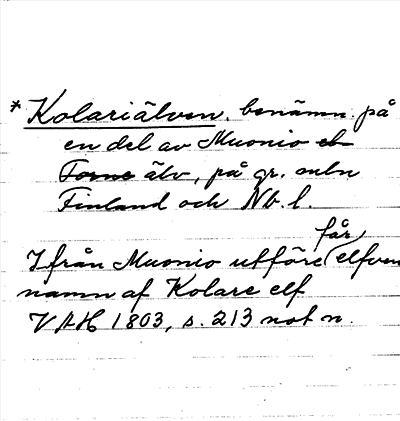 * Kolariälven, benämn. på
en del av Muonio el.
Torne älv, på gr. mln
Finland och Nb. l.
får
Ifrån Muonio utföre elfven
namn af Kolare elf
VAH 1803, s. 213 not n.